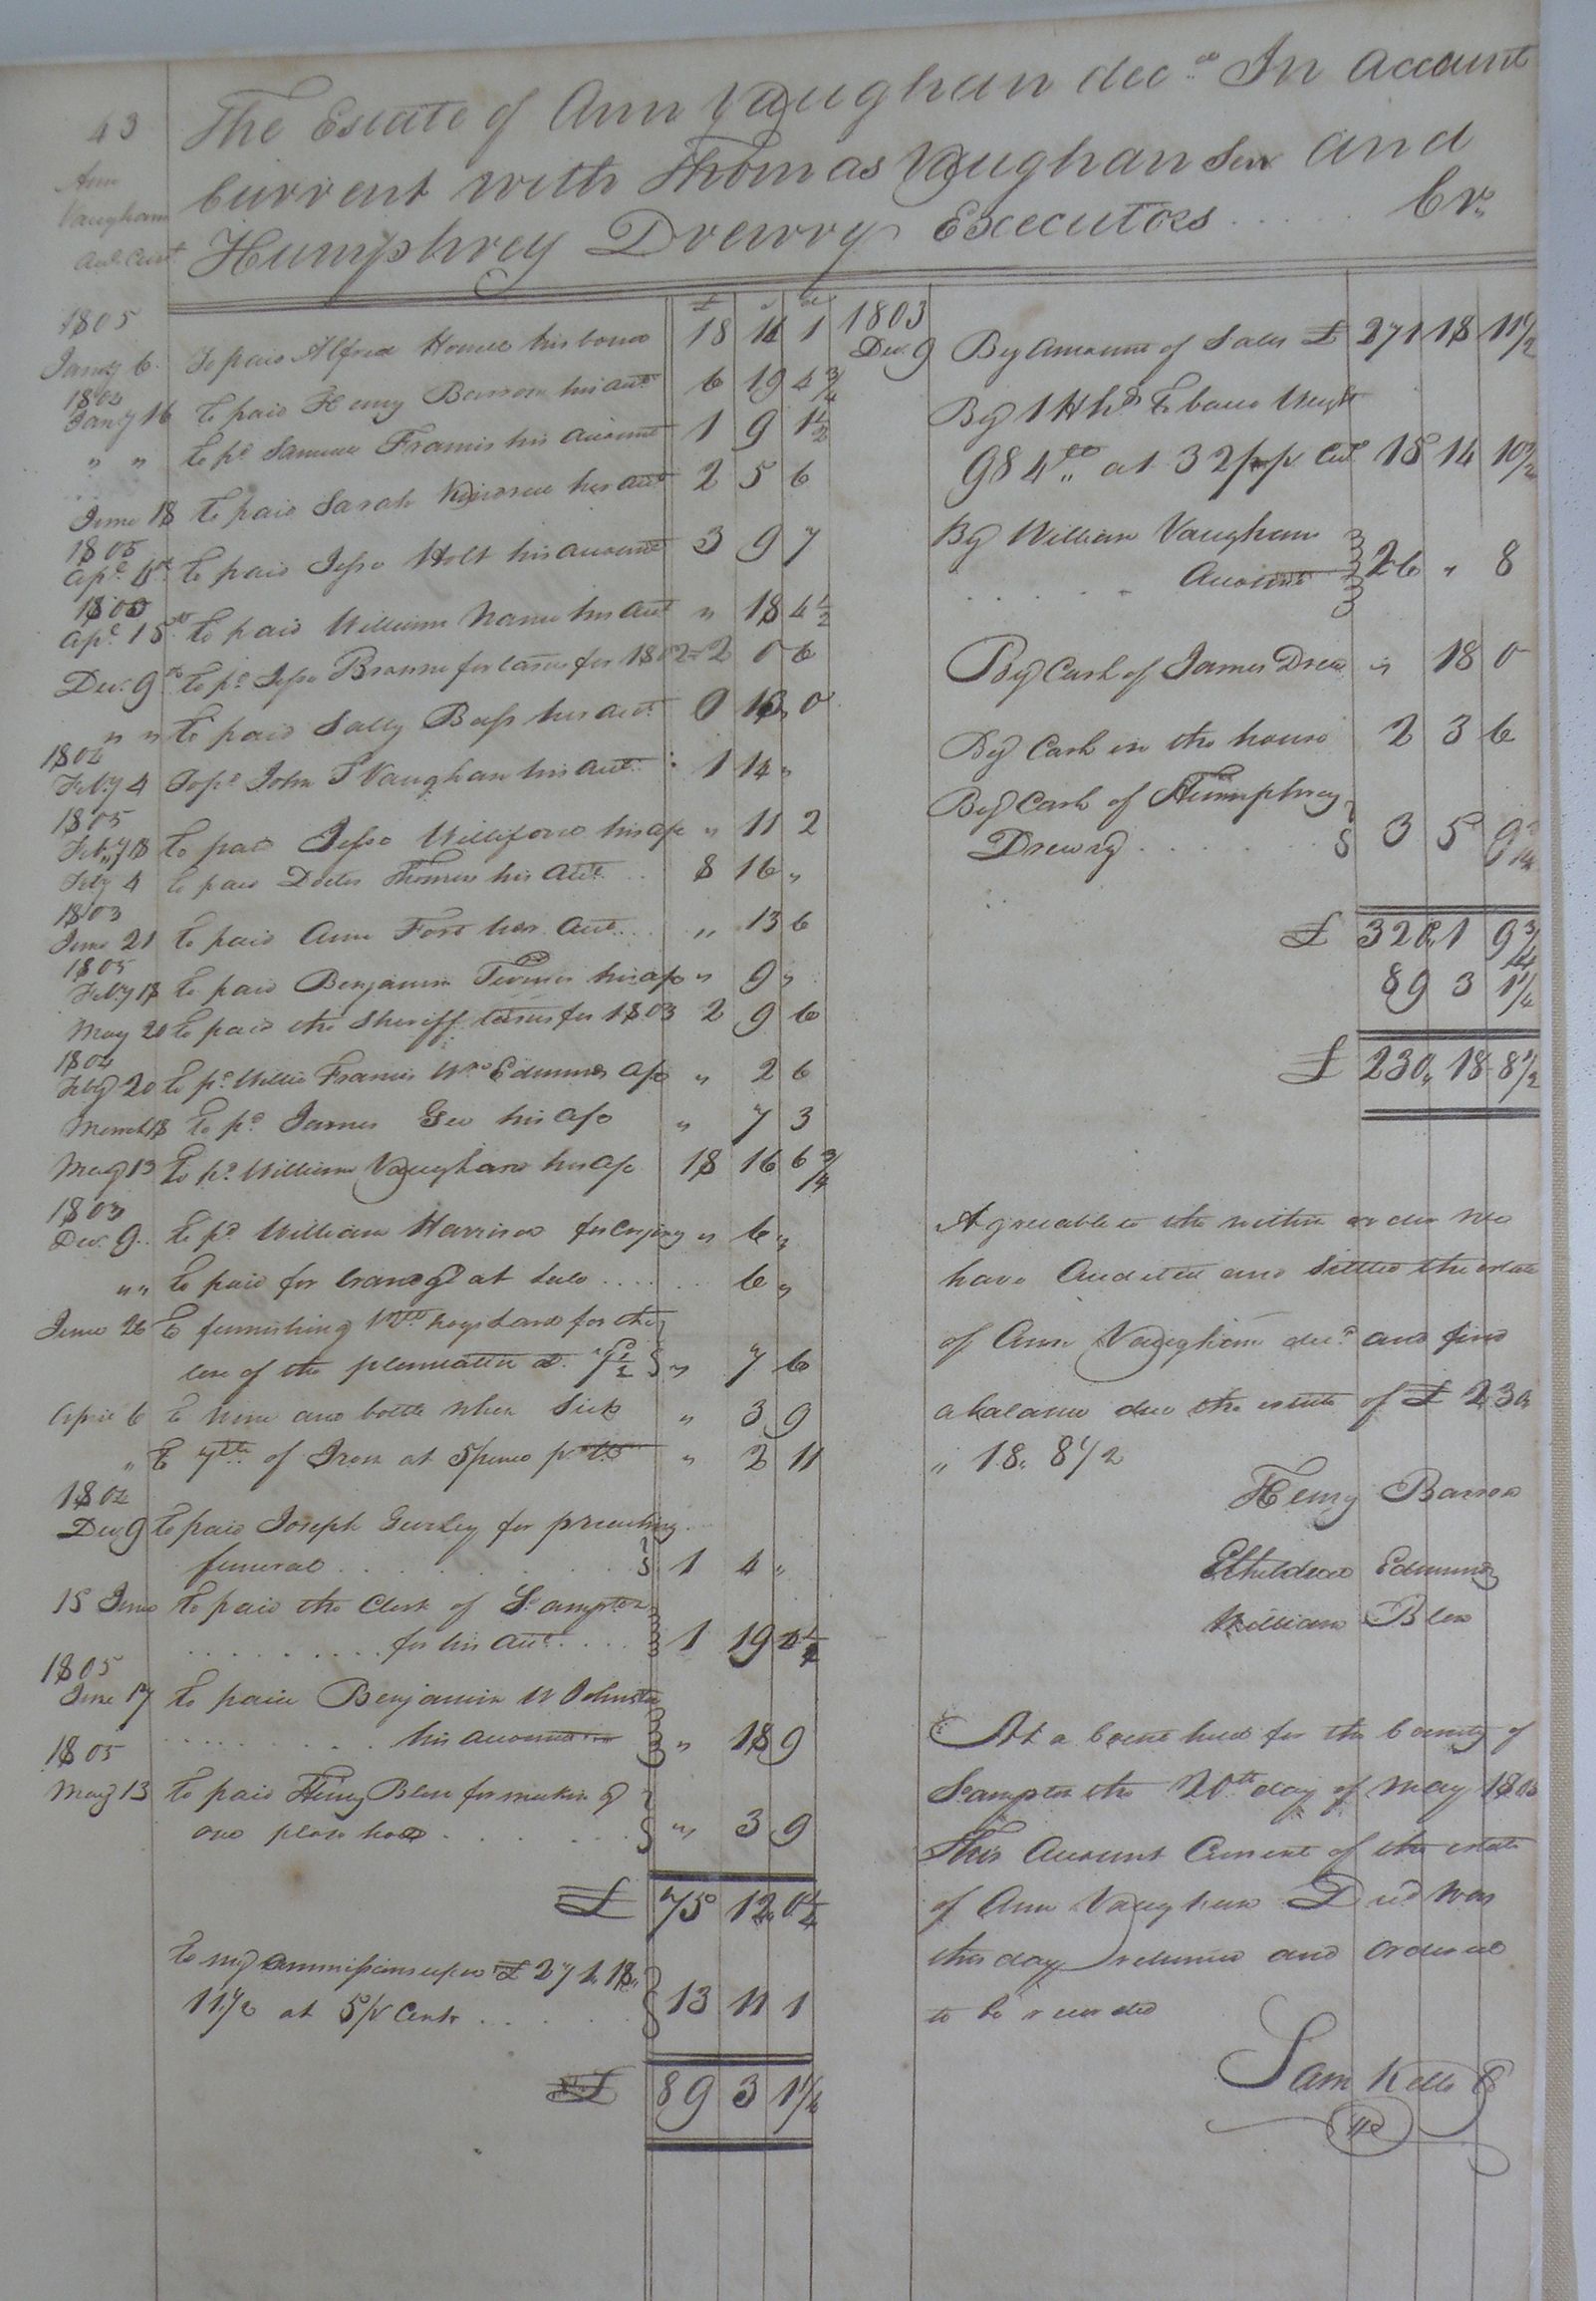 43
Ann
Vaughan
The Estate of Ann Vaughan decd In account
Current with Thomas Vaughan Senr and
Humphrey Drewry Executors ..... Cr.
£ s d
1805
Jany 6. To paid Alfred Howell his bond 18 11 1
1804
Jany 16 To paid Henry Barrow his acct 6 19 4 3/4
" " To pd Samuel Francis his account 1 9 1 1/2
June 18 To paid Sarah her acct 2 5 6
1805
Apl To paid Jesse Holt his account 3 9 7
Apl 15th To paid William his acct " 18 4 1/2
Decr 9th To pd Jesse Browne for taxes for 1802 2 0 6
" " To paid Sally Bass her acct 0 0
1804
Feby 4 To pd John T Vaughan his acct 1 14 "
1805
Feby 18 To paid Jesse Williford his a/c " 11 2
Feby 4 To paid Doctor Thomas his acct 8 16 "
1803
June 21 To paid Ann Fort her acct .... " 13 6
1805
Feby 18 To paid Benjamin Turner his a/c " 9 "
May 20 To paid the Sheriff taxes for 1803 2 9 6
1804
Feby 20 To pd Willie Francis Wm Edmunds a/c " 2 6
March 18 To pd James Gee his a/c " 7 3
May 13 To pd William Vaughan his a/c 18 16 6 3/4
1803
Decr 9. To pd William Harrison for Crying " 6 "
" " To paid for brandy at sale ...... 6 "
June 26 To furnishing hogs Lard for the
use of the plantation at 7 1/2 " 7 6
April 6 To wine and bottle when Sick " 3 9
" To 7lb of Iron at 5 pence pr lb " 2 11
1804
Decr 9 To paid Joseph Gurley for preaching
funeral ........ 1 4 "
15 June To paid the Clerk of So ampton
......... for his acct .... 1 19
1805
June 17 To paid Benjamin W Johnston
......... his account " 18 9
1805
May 13 To paid Henry Blow for making
one plow hoe ....... " 3 9
£ 75 12 0 1/4
To my commissions upon £271. 18.
11 1/2 at 5 pr Cent ...... 13 11 1
£ 89 3 1 1/4
1803
Decr 9 By amount of Sales £ 271 18 11 1/2
By 1 Hhd Tobacco Weight
984 at 32/ pr Cwt 15 14 10 1/2
By William Vaughan
Account 26 " 8
By Cash of James Drew " 18 0
By Cash in the house 2 3 6
By Cash of Humphrey
Drewry ....... 3 5 9 3/4
£ 320 " 1 9 3/4
89 3 1 1/4
£ 230 " 18 8 1/2
Agreeable to the within order we
have Audited and Settled the estate
of Ann Vaughan decd and find
a balance due the estate of £ 230
" 18. 8 1/2
Henry Barrow
Etheldred Edmunds
William Blow
At a Court held for the County of
So ampton the 20th day of May 1805
This Account Current of the estate
of Ann Vaughan Decd was
this day returned and Ordered
to be recorded
Sam Kello C